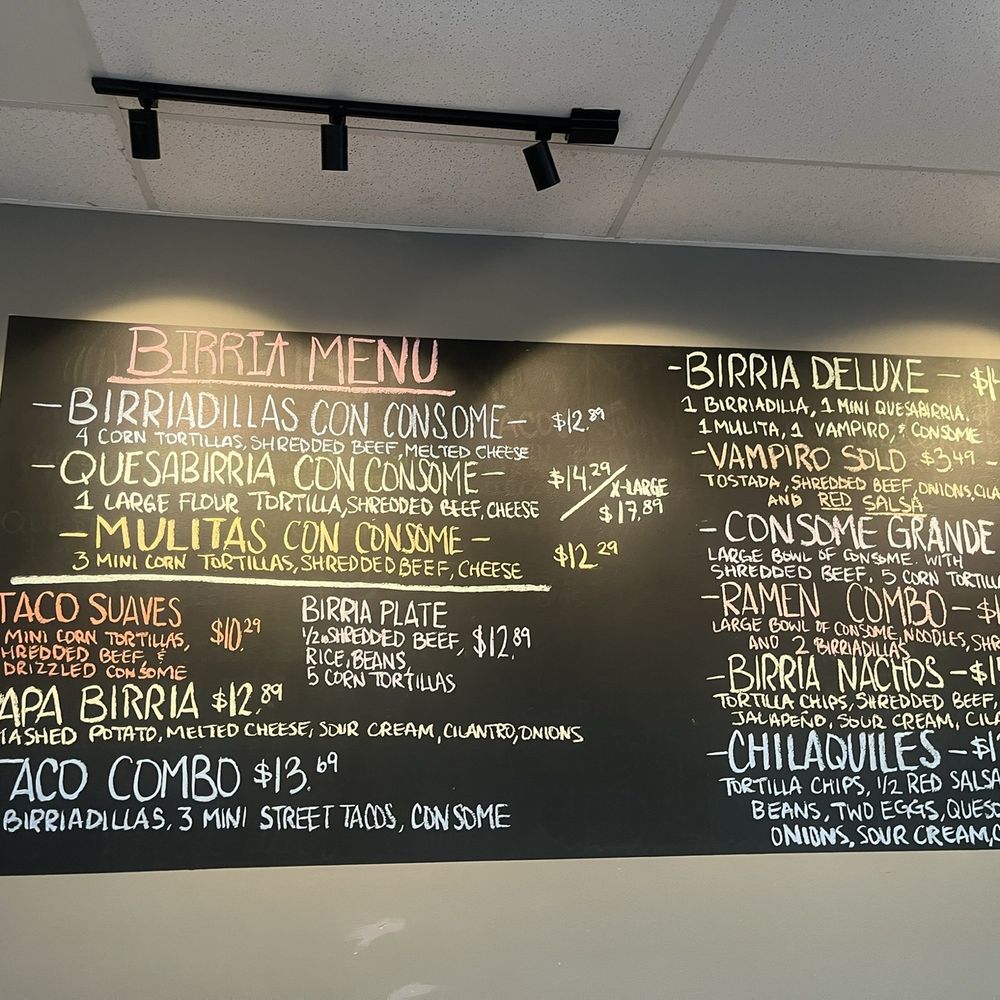 BIRRIA MENU
-BIRRIADILLAS CON CONSOME- $12.89
4 CORN TORTILLAS, SHREDDED BEEF, MELTED CHEESE
-QUESABIRRIA CON CONSOME- $14.29/X-LARGE $17.89
1 LARGE FLOUR TORTILLA, SHREDDED BEEF, CHEESE
-MULITAS CON CONSOME- $12.29
3 MINI CORN TORTILLAS, SHREDDED BEEF, CHEESE
TACO SUAVES $10.29
MINI CORN TORTILLAS,
HREDDED BEEF &
DRIZZLED CONSOME
BIRRIA PLATE
1/2 SHREDDED BEEF, $12.89
RICE, BEANS,
5 CORN TORTILLAS
APA BIRRIA $12.89
ASHED POTATO, MELTED CHEESE, SOUR CREAM, CILANTRO, ONIONS
TACO COMBO $13.69
BIRRIADILLAS, 3 MINI STREET TACOS, CONSOME
-BIRRIA DELUXE - $1
1 BIRRIADILLA, 1 MINI QUESABIRRIA,
1 MULITA, 1 VAMPIRO, & CONSOME
-VAMPIRO SOLO - $3.49 -
TOSTADA, SHREDDED BEEF, ONIONS, CILA
AND RED SALSA
-CONSOME GRANDE
LARGE BOWL OF CONSOME WITH
SHREDDED BEEF, 5 CORN TORTILL
-RAMEN COMBO - $1
LARGE BOWL OF CONSOME, NOODLES, SHR
AND 2 BIRRIADILLAS
-BIRRIA NACHOS - $1
TORTILLA CHIPS, SHREDDED BEEF,
JALAPEÑO, SOUR CREAM, CILA
-CHILAQUILES - $1
TORTILLA CHIPS, 1/2 RED SALSA
BEANS, TWO EGGS, QUESO
ONIONS, SOUR CREAM, C